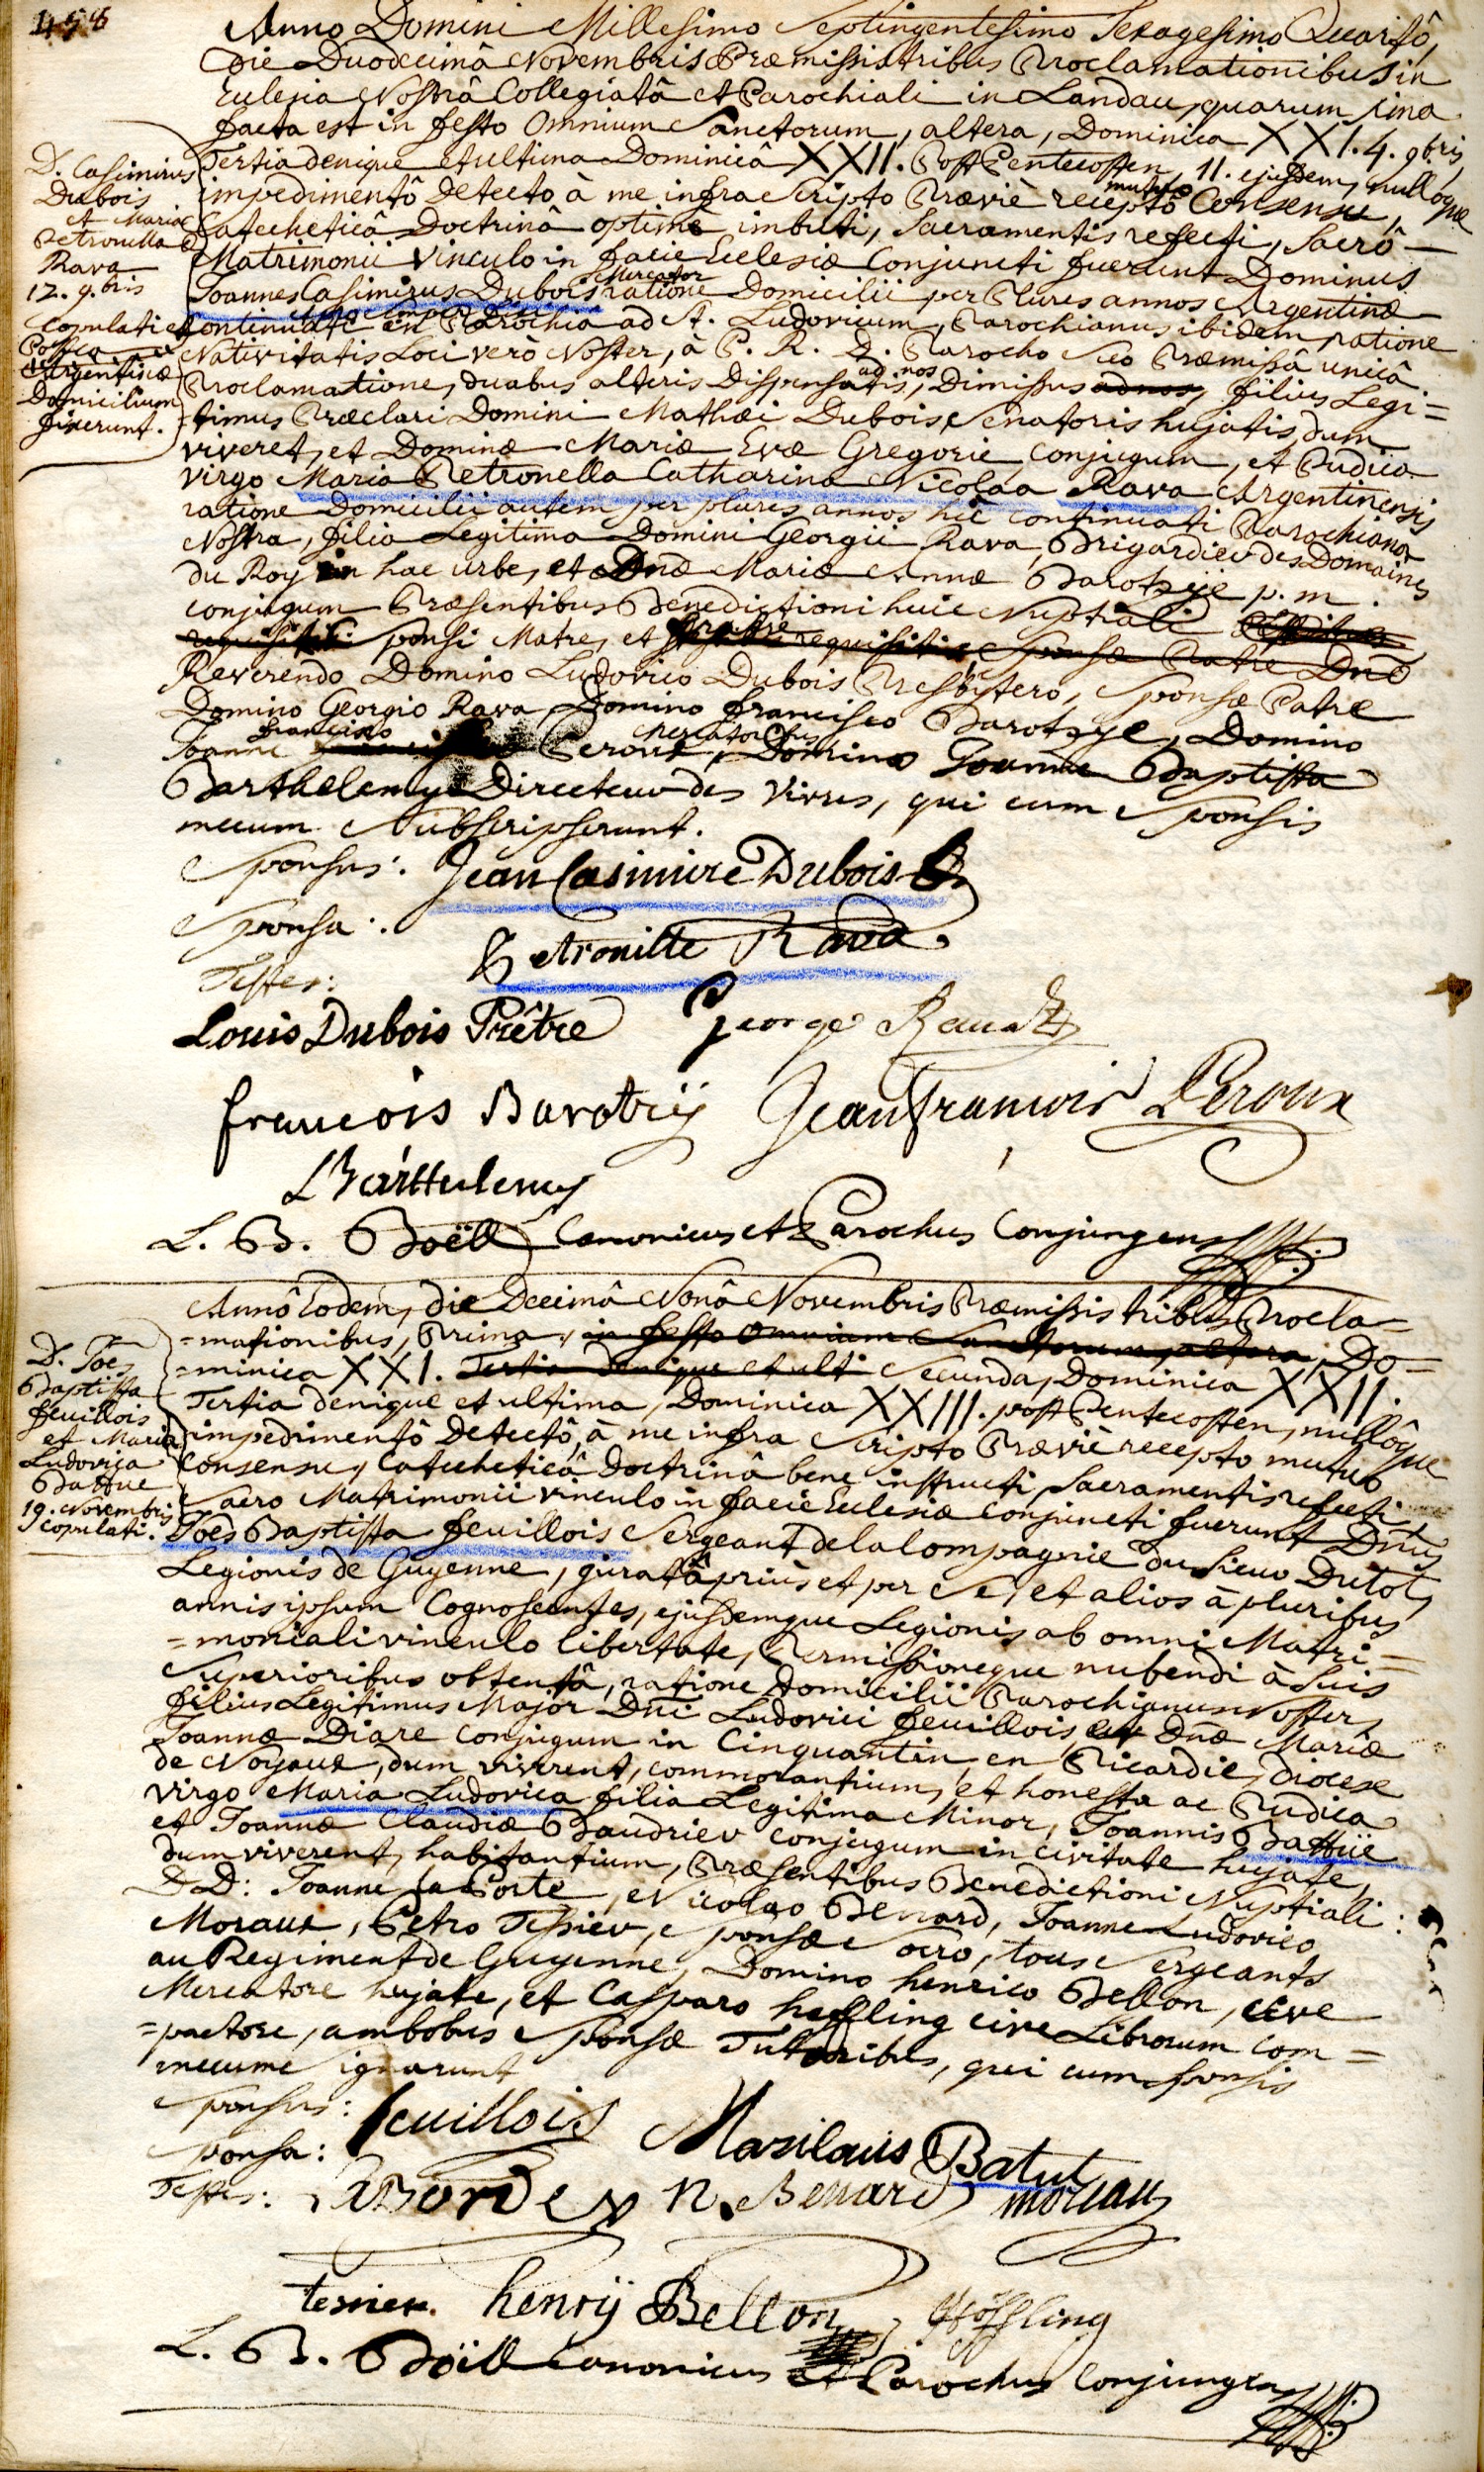 458
Anno Domini Millesimo Septingentesimo Sexagesimo Quartô,
die Duodecimâ Novembris Præmissis tribus Proclamationibus in
Eclesia Nostrâ Collegiatâ et Parochiali in Landau, quarum ima
facta est in festo Omnium Sanctorum, altera, Dominica XXI. 4. 9bris,
Tertia denique et ultima Dominicâ XXII. Post Pentecosten, 11. ejusdem, nulloque
impedimentô Detecto, à me infra Scripto Præviè receptô mutuo Consensu,
Catecheticâ Doctrinâ optimè imbuti, Sacramentis refecti, Sacrô
Matrimonii Vinculo in facie Eclesiæ Conjuncti fuerunt Dominus
Joannes Casimirus Dubois Mercator ratione Domicilii per Plures annos Argentinæ
Continuati in Parochia ad St. Ludovicum, Parochianus ibidem, ratione
Nativitatis Loci verò Noster, à P. R. D. Parocho Suo Præmissâ unicâ
Proclamatione, duabus alteris Dispensatis, ad nos Dimissus ad nos, filius Legi=
=timus Præclari Domini Mathæi Dubois, Senatoris hujatis, dum
viveret, et Dominæ Mariæ Evæ Gregorie Conjugum, et Pudica
virgo Maria Petronella Catharina Nicolaa Rava Argentinensis
ratione Domicilii autem per plures annos hîc continuati Parochiana
Nostra, filia Legitima Domini Georgii Rava, Brigardier des Domaines
du Roy in hac urbe, et Dnæ Mariæ Annæ Barotzye p. m.
conjugum Præsentibus Benedictioni huic Nuptiali
Sponsi Matre, et fratre requisitis, Sponsæ Patre Dno
Reverendo Domino Ludovico Dubois Presbytero, Sponsæ Patre
Domino Georgio Rava, Domino Francisco Barotzye, Domino
Joanne Francisco Peroux, Mercatoribus, Domino Joanne Baptista
Barthelemye Directeur des Vivres, qui cum Sponsis
mecum Subscripserunt.
D. Casimirus
Dubois
et Maria
Petronella
Rava
12. 9.bris
copulati et
Postea
Argentinæ
Domicilium
fixerunt.
Sponsus: Jean Casimire Dubois
Sponsa: Petronille Rava.
Testes:
Louis Dubois Prêtre George Rava
francois Barotzij Jean francois Peroux
LBarthelemy
L. B. Boëll Canonicus et Parochus Conjungens
Annô Eodem, die Decimâ Nonâ Novembris Præmissis tribus Procla=
=mationibus, Prima, in festo Omnium Sanctorum, altera, Do=
=minica XXI. Tertia denique et ulti Secunda, Dominica XXII.
Tertia denique et ultima, Dominica XXIII. post Pentecosten, nullôque
impedimentô Detectô, à me infra Scripto Præviè recepto mutuo
consensu, Catecheticâ Doctrinâ bene instructi, Sacramentis refecti,
Sacro Matrimonii vinculo in facie Eclesiæ conjuncti fuerunt Dnus
Joes Baptista feuillois Sergeant de la Compagnie du Sieur Dutot,
Legionis de Guyenne, juratâ priùs et per Se, et alios à pluribus
annis ipsum Cognoscentes, ejusdemque Legionis ab omni Matri=
=moniali vinculo libertate, Permissioneque nubendi à Suis
Superioribus obtentâ, ratione Domicilii Parochianus Noster,
filius Legitimus Major Dni Ludovici feuillois, et Dnæ Mariæ
Joannæ Diare conjugum in Cinquantin, en Picardie, Diocese
de Noyaux, dum viverent, commorantium, et honesta ac Pudica
virgo Maria Ludovica filia Legitima Minor, Joannis Battüe
et Joannæ Claudiæ Baudrier conjugum in civitate hujate,
dum viverent, habitantium, Præsentibus Benedictioni Nuptiali:
DD: Joanne la Porte, Nicolao Benard, Joanne Ludovico
Moraux, Petro Tessier, Sponsæ Socro, tous Sergeants
au Regiment de Guyenne, Domino Henrico Bellon, cive
Mercatore hujate, et Casparo Heffling cive Librorum com=
=pactore, ambobus Sponsæ Tutoribus, qui cum Sponsis
mecum Signarunt
D. Joes
Baptista
feuillois
et Maria
Ludovica
Battue
19. Novembris
copulati.
Sponsus: feuillois
Sponsa: Marilouis Batut
Testes: N. Benard moreau
tesnier. henrij Bellon, Höffling
L. B. Boëll Canonicus et Parochus Conjungens